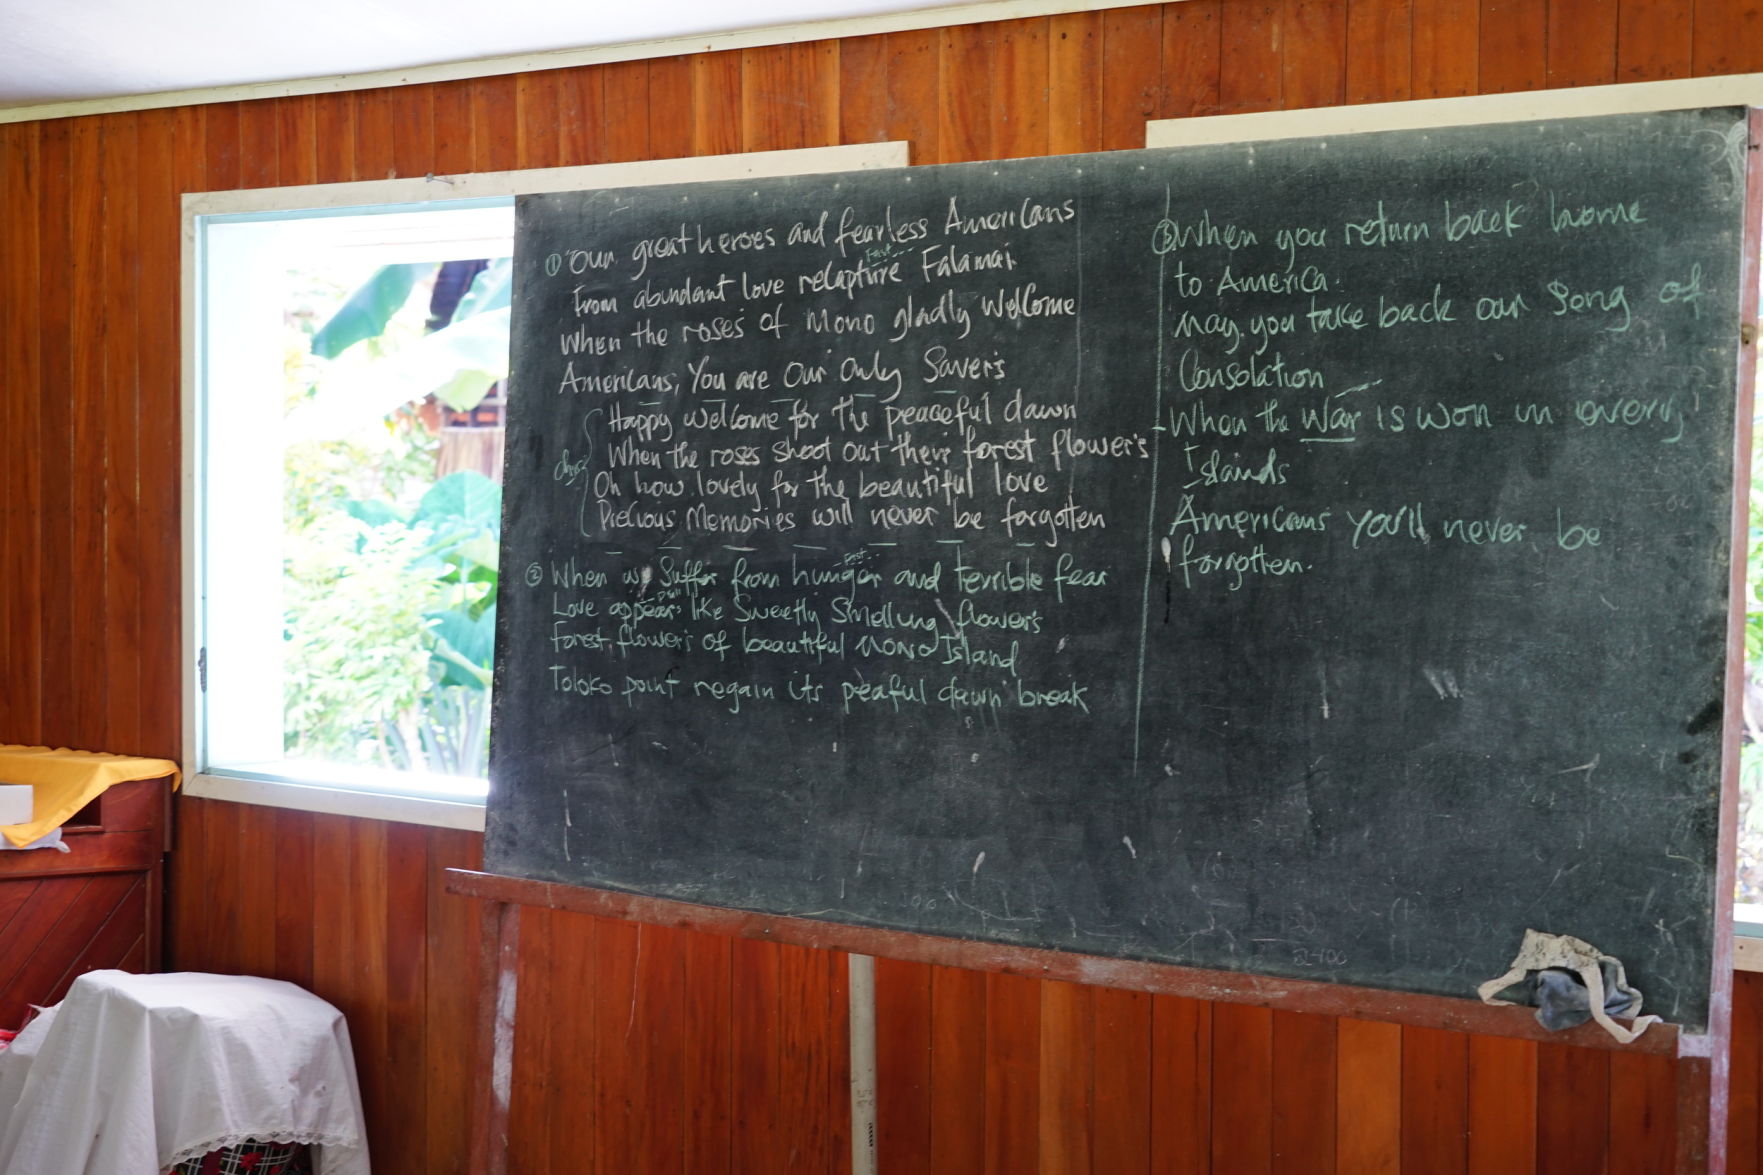 ① Our great heroes and fearless Americans
Fast..
From abundant love recapture Falamai.
When the roses of Mono gladly Welcome
Americans, You are Our Only Saver's
Happy Welcome for the peaceful dawn
When the roses shoot out their forest flower's
Oh how lovely for the beautiful love
Precious Memories will never be forgotten
Fast..
② When we Suffer from hunger and terrible fear
Love appears like Sweetly Smelling flower's
Forest flower's of beautiful Mono Island
Toloko point regain its peaful dawn break
③ When you return back home
to America.
May you take back our Song of
Consolation
When the War is won in every
Islands
Americans you'll never be
forgotten.
2400